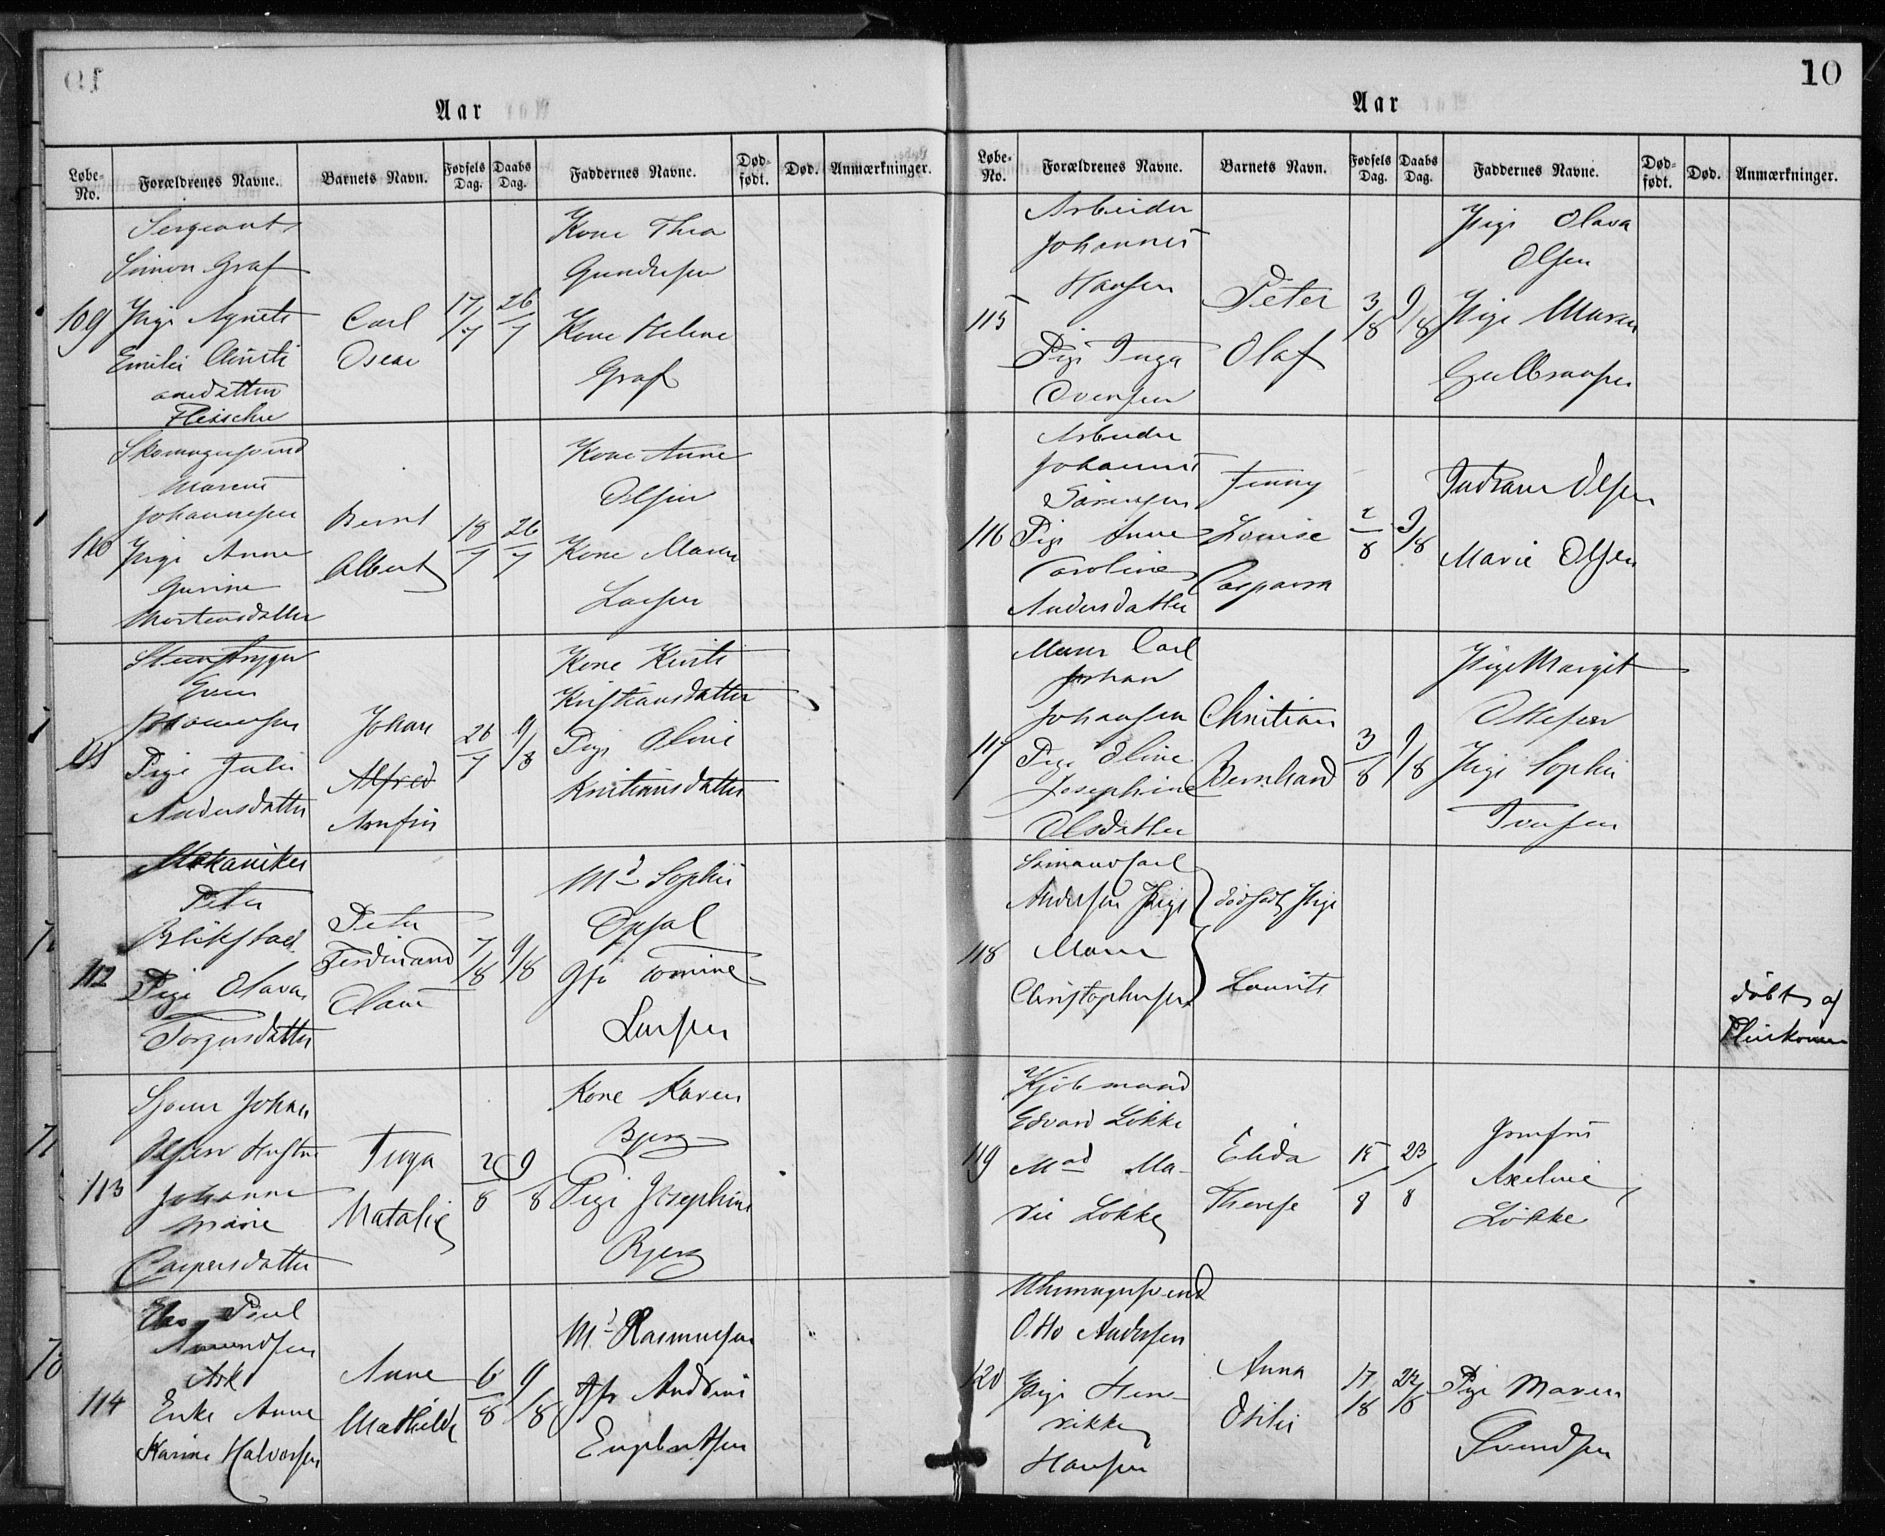 10
Aar
Løbe-No. Forældrenes Navne. Barnets Navn. Fødsels Dag. Daabs Dag. Faddernes Navne. Død-født. Død. Anmærkninger.
109
Sergeant
Simon Graf
Pige Agnete
Emilie Christi
ansdatter
Fleischer
Carl
Oscar
17/7
26/7
Kone Thea
Gundersen
Kone Helene
Graf
110
Skomagersvend
Marius
Johannesen
Pige Anne
Gurine
Mortensdatter
Bernt
Albert
18/7
26/7
Kone Anne
Olsen
Kone Maren
Larsen
Even
Pige Julie
Andersdatter
Johan
Alfred
Arnfin
26/7
9/8
Kone
Kristiansdatter
Pige Oline
Kristiansdatter
112
Mekaniker
Peter
Blikstad
Pige Olava
Torgersdatter
Peter
Ferdinand
Olaus
7/8
9/8
Md Sophie
Opsal
Larsen
113
Johan
Olsen Hustru
Johanne
Marie
Caspersdatter
Inga
Natalie
2/8
9/8
Kone Karen
Bjerg
Pige Josephine
Bjerg
114
Paul
Amundsen
Ask
Enke Anne
Karine Halvorsen
Anne
Mathilde
6/8
9/8
Md Rasmussen
Jfr Andrine
Engebretsen
10
Aar
Løbe-No. Forældrenes Navne. Barnets Navn. Fødsels Dag. Daabs Dag. Faddernes Navne. Død-født. Død. Anmærkninger.
115
Arbeider
Johannes
Hansen
Pige Inga
Evensen
Peter
Olaf
3/8
9/8
Pige Olava
Olsen
Pige Maren
Gulbransen
116
Arbeider
Johannes
Sørensen
Pige Anne
Caroline
Andersdatter
Jenny
Louise
Casparra
2/8
9/8
Olsen
Marie Olsen
117
Murer Carl
Johan
Johansen
Pige Oline
Josephine
Olsdatter
Christian
Bernhard
3/8
9/8
Pige Margit
Ottesen
Pige Sophie
Iversen
118
Sømand Carl
Andersen Pige
Maren
Christophersen
Laurits
døbt af
119
Kjøbmand
Edvard Løkke
Mad Ma-
rie Løkke
Elida
Therese
15/8
23/8
Jomfru
Axeline
Løkke
120
Uhrmagersvend
Otto Andersen
Pige Hen-
rikke
Hansen
Anna
Otilie
17/8
Pige Maren
Svendsen